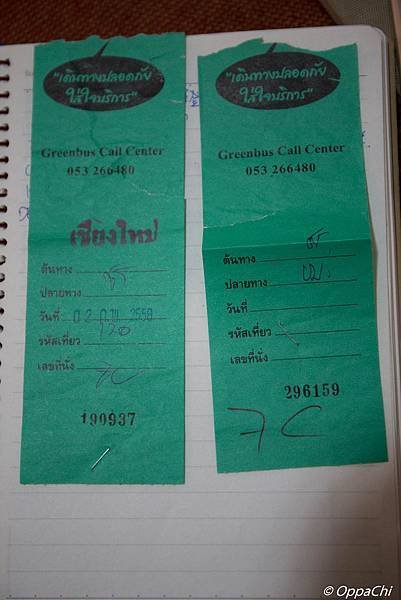 "เดินทางปลอดภัย
ใส่ใจบริการ"
Greenbus Call Center
053 266480
เชียงใหม่
ต้นทาง
ปลายทาง ชร
วันที่ 02 ก.พ. 2559
รหัสเที่ยว 120
เลขที่นั่ง 7C
190937
"เดินทางปลอดภัย
ใส่ใจบริการ"
Greenbus Call Center
053 266480
ต้นทาง ชร
ปลายทาง
วันที่
รหัสเที่ยว
เลขที่นั่ง
296159
7C
© OppaChi